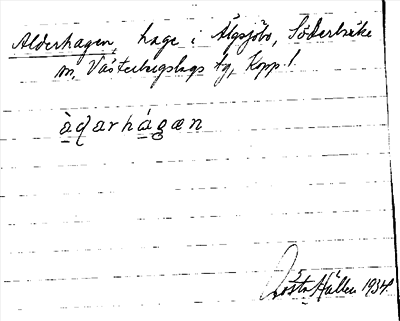 Alderhagen, hage i Älgsjöbo, Söderbärke
sn, Västerbergslags tg, Kopp. l.
àɖarhágæn
Gösta Hallen 1934